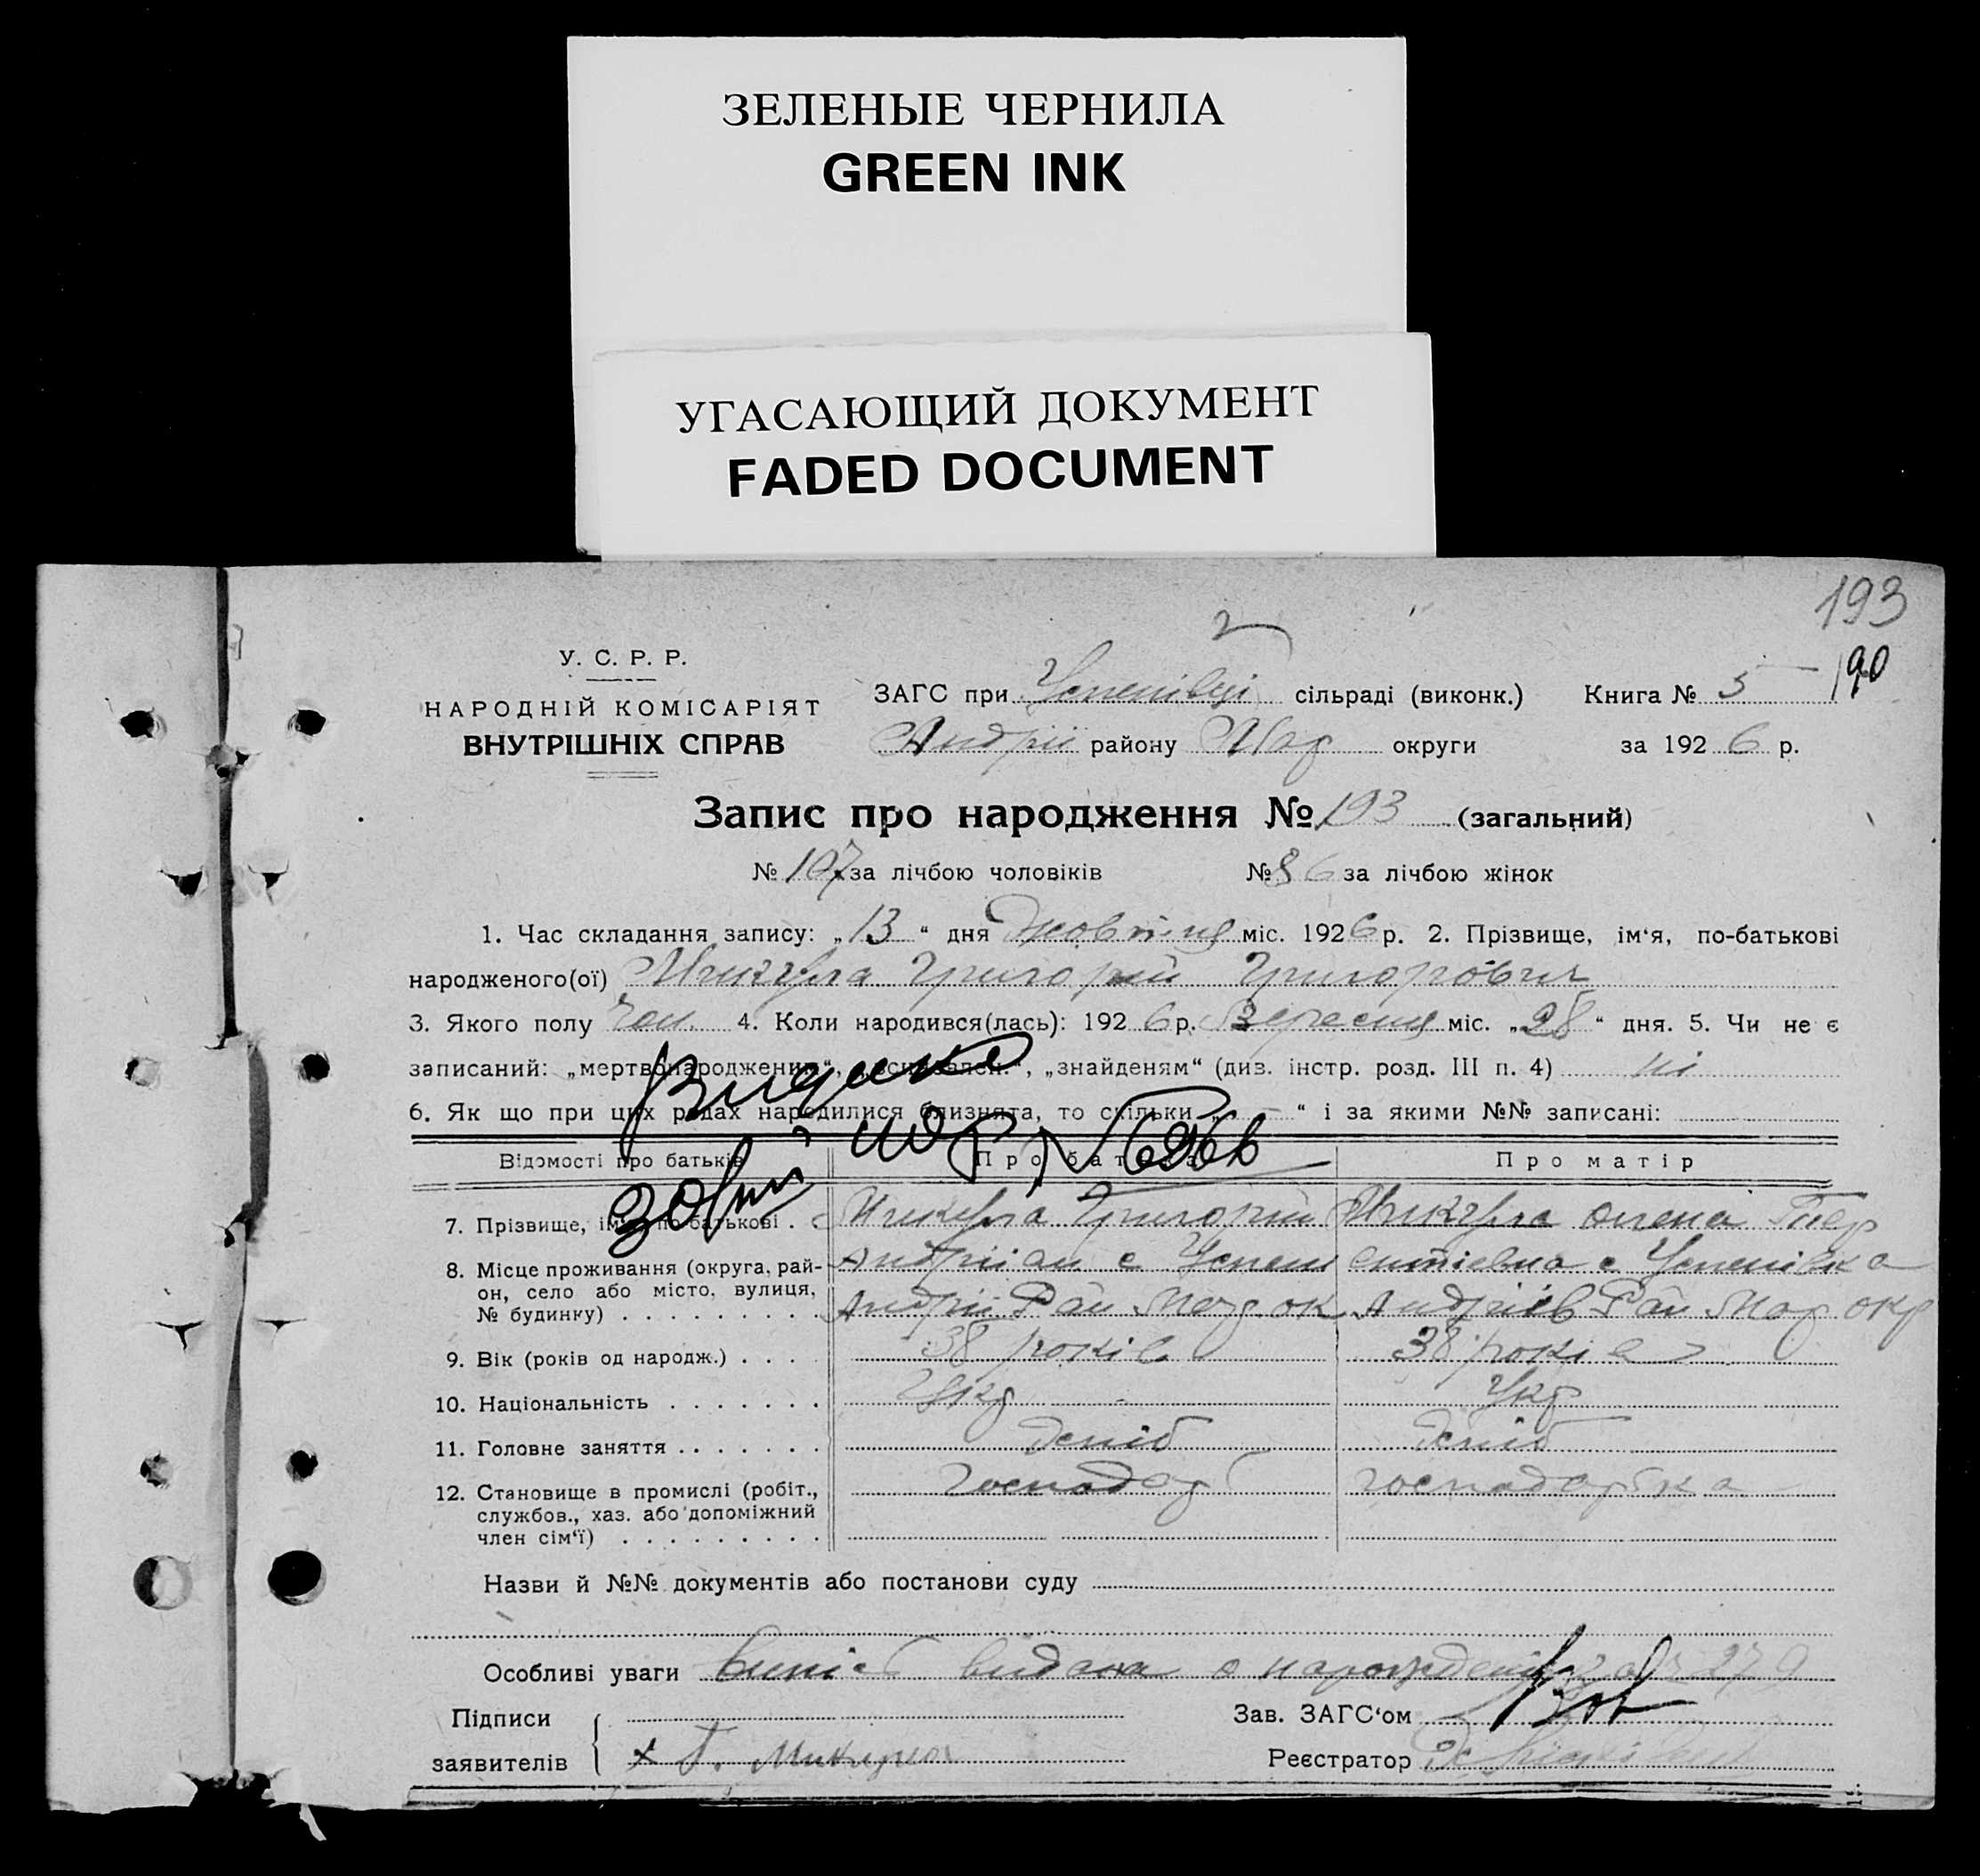 ЗЕЛЕНЫЕ ЧЕРНИЛА
GREEN INK
УГАСАЮЩИЙ ДОКУМЕНТ
FADED DOCUMENT
193
190
2
У. С. Р. Р.
НАРОДНІЙ КОМІСАРІЯТ
ВНУТРІШНІХ СПРАВ
ЗАГС при Успенівці сільраді (виконк.) Книга № 5
Андрії району Мар округи за 1926 р.
Запис про народження № 193 (загальний)
№ 107 за лічбою чоловіків № 86 за лічбою жінок
1. Час складання запису: „13“ дня Жовтня міс. 1926 р. 2. Прізвище, ім‘я, по-батькові
народженого(ої) Микула Григорій Григорович
3. Якого полу Чол. 4. Коли народився(лась): 1926 р. Вересня міс. „28“ дня. 5. Чи не є
записаний: „мертвонароджений“, „знайденям“ (див. інстр. розд. III п. 4) ні
6. Як що при цих родах народилися близнята, то скільки „-“ і за якими №№ записані:
Відомості про батьків Про батька Про матір
7. Прізвище, ім‘я, по-батькові . . Микула Григорій Микула Олена
8. Місце проживання (округа, рай-он, село або місто, вулиця, № будинку) . . . . . . . . . с Успен с Успенівка
Андрії Рай Мар. ок Андріїв Рай Мар окр
9. Вік (років од народж.) . . . . 38 років 38 років
10. Національність . . . . . . . Укр Укр
11. Головне заняття . . . . . . . хліб хліб
12. Становище в промислі (робіт., службов., хаз. або допоміжний член сім‘ї) . . . . . . . . . господар господарка
Назви й №№ документів або постанови суду
Особливі уваги видана о нарождении 279
Підписи
заявителів
х Г. Микула
Зав. ЗАГС‘ом
Реєстратор